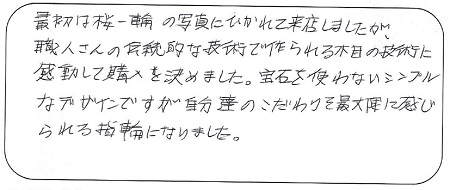 最初は桜一輪の写真にひかれて来店しましたが、
職人さんの伝統的な技術で作られる木目の技術に
感動して購入を決めました。宝石を使わないシンプル
なデザインですが自分達のこだわりを最大限に感じ
られる指輪になりました。